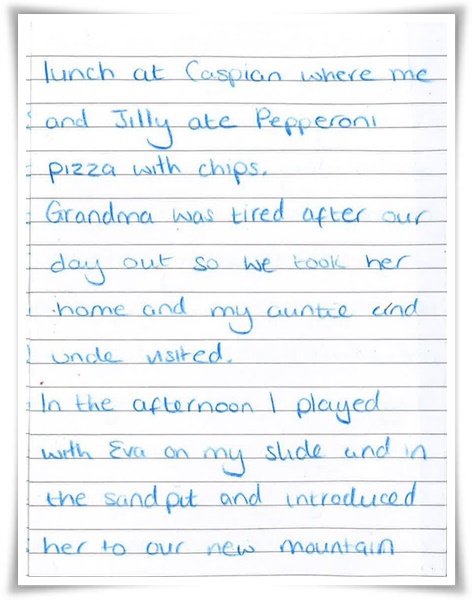 lunch at Caspian where me
and Jilly ate Pepperoni
pizza with chips.
Grandma was tired after our
day out so we took her
home and my auntie and
uncle visited.
In the afternoon I played
with Eva on my slide and in
the sandpit and introduced
her to our new mountain